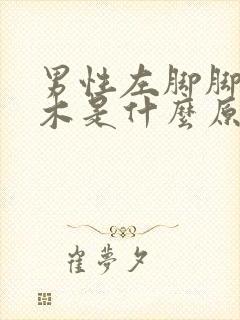 男性左脚脚
木是什麼原
崔夢夕